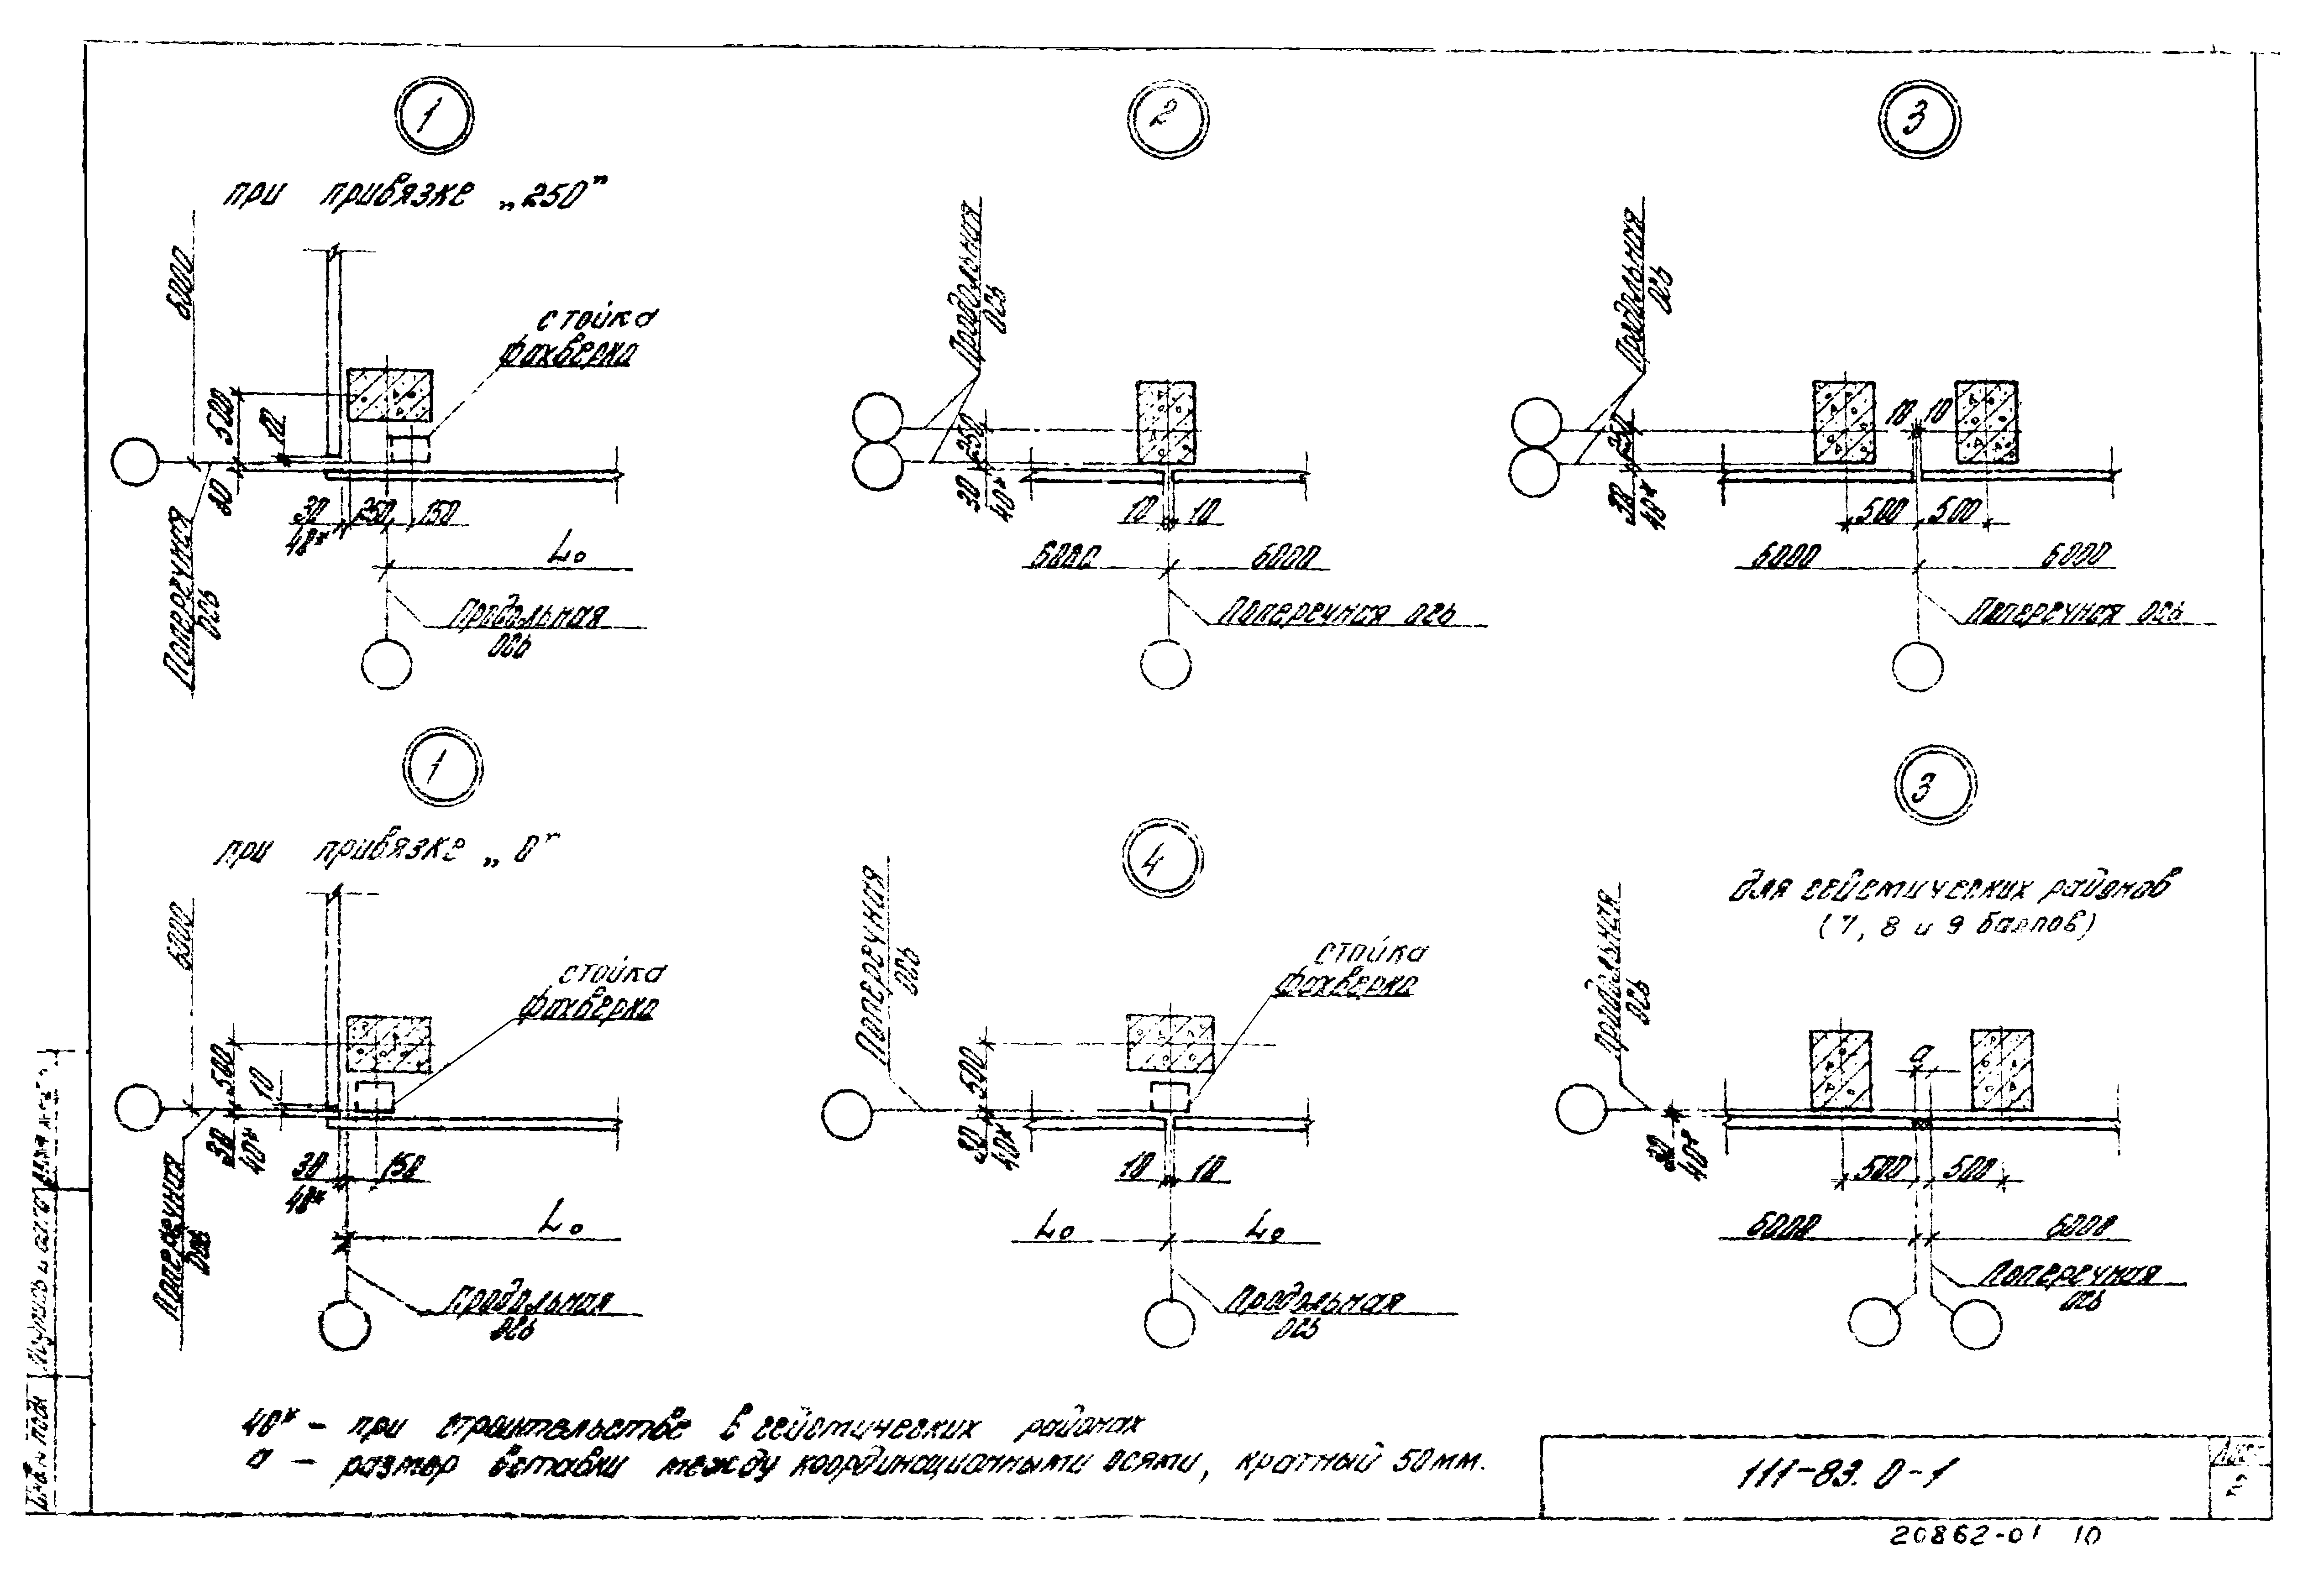 1
при привязке „250"
6000
500
10
30
стойка
фахверка
30
40*
250
150
Lо
Поперечная
ось
Продольная
ось
2
Продольная
ось
250
30
40*
10
10
6000
6000
Поперечная ось
3
Продольная
ось
10
10
250
30
40*
500
500
6000
6000
Поперечная ось
1
при привязке „0"
6000
500
10
30
40*
стойка
фахверка
30
40*
150
Lо
Поперечная
ось
Продольная
ось
4
Поперечная
ось
стойка
фахверка
500
30
40*
10
10
Lо
Lо
Продольная
ось
3
для сейсмических районов
(7, 8 и 9 баллов)
Продольная
ось
a
30
40*
500
500
6000
6000
Поперечная
ось
40* – при строительстве в сейсмических районах
a – размер вставки между координационными осями, кратный 50мм.
111-83. 0-1
Лист
2
Инв. N подл
Подпись и дата
20862-01 10